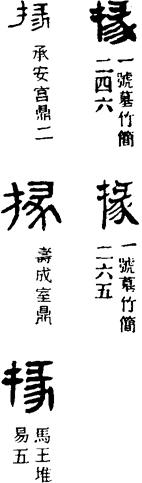 掾
一號墓竹簡
二四六
掾
一號墓竹簡
二六五
掾
承安宮鼎二
掾
壽成室鼎
掾
馬王堆
易五